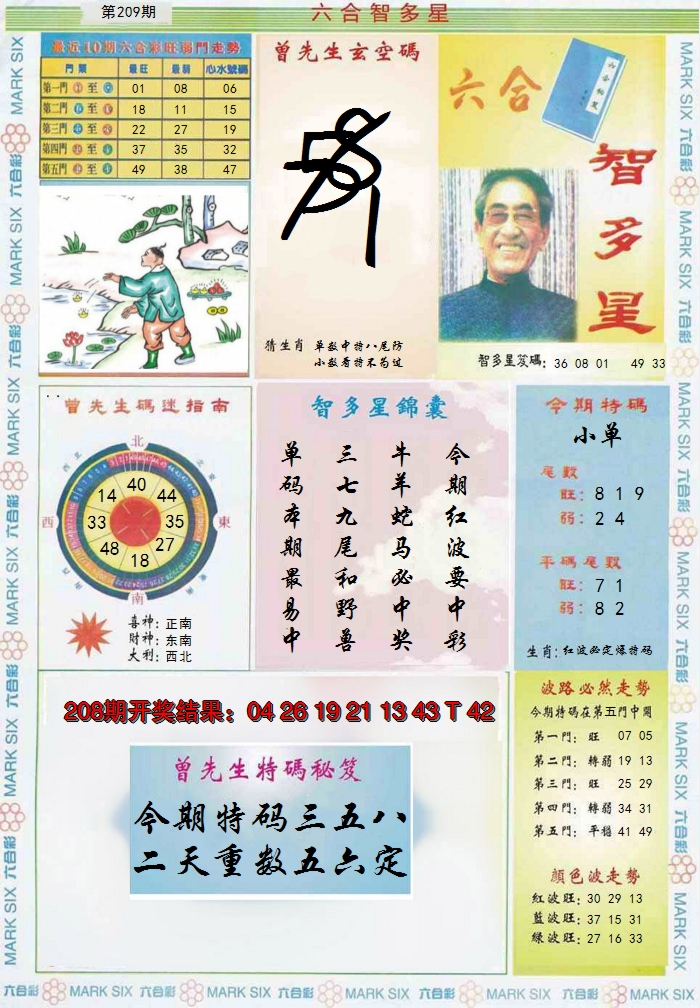 第209期
六合智多星
最近10期六合彩旺弱門走勢
門類 最旺 最弱 心水號碼
第一門 至 01 08 06
第二門 至 18 11 15
第三門 至 22 27 19
第四門 至 37 35 32
第五門 至 49 38 47
曾先生玄空碼
猜生肖 单数中特八尾防
小数看特不为过
六合
智多星
智多星笈碼: 36 08 01 49 33
曾先生碼迷指南
北
西
東
南
40
44
35
27
18
48
33
14
喜神: 正南
財神: 东南
大利: 西北
智多星錦囊
今期红波要中彩
牛羊蛇马必中奖
三七九尾和野兽
单码本期最易中
今期特碼
小单
尾數
旺: 8 1 9
弱: 2 4
平碼尾數
旺: 7 1
弱: 8 2
生肖: 红波必定爆特码
208期开奖结果：04 26 19 21 13 43 T 42
曾先生特碼秘笈
今期特码三五八
二天重数五六定
波路必然走勢
今期特碼在第五門中開
第一門: 旺 07 05
第二門: 轉弱 19 13
第三門: 旺 25 29
第四門: 轉弱 34 31
第五門: 平穩 41 49
顔色波走勢
红波旺: 30 29 13
藍波旺: 37 15 31
緑波旺: 27 16 33
MARK SIX 六合彩